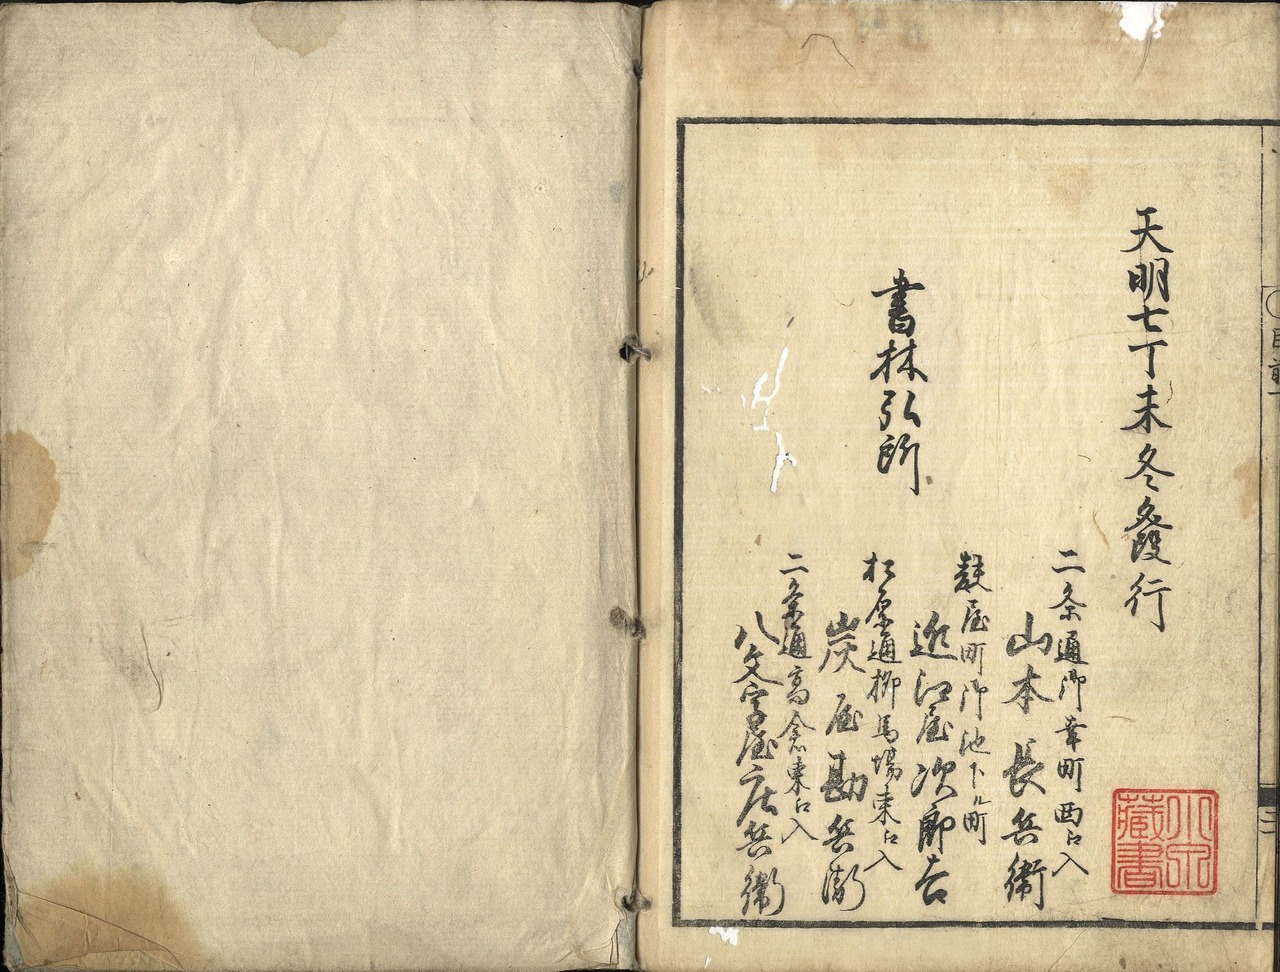 天明七丁未冬發行
二条通御幸町西江入
山本長兵衛
麸屋町御池下ル町
近江屋次郎吉
書林弘所
松原通柳馬場東江入
炭屋勘兵衛
二条通高倉東江入
八文字屋庄兵衛
藏書